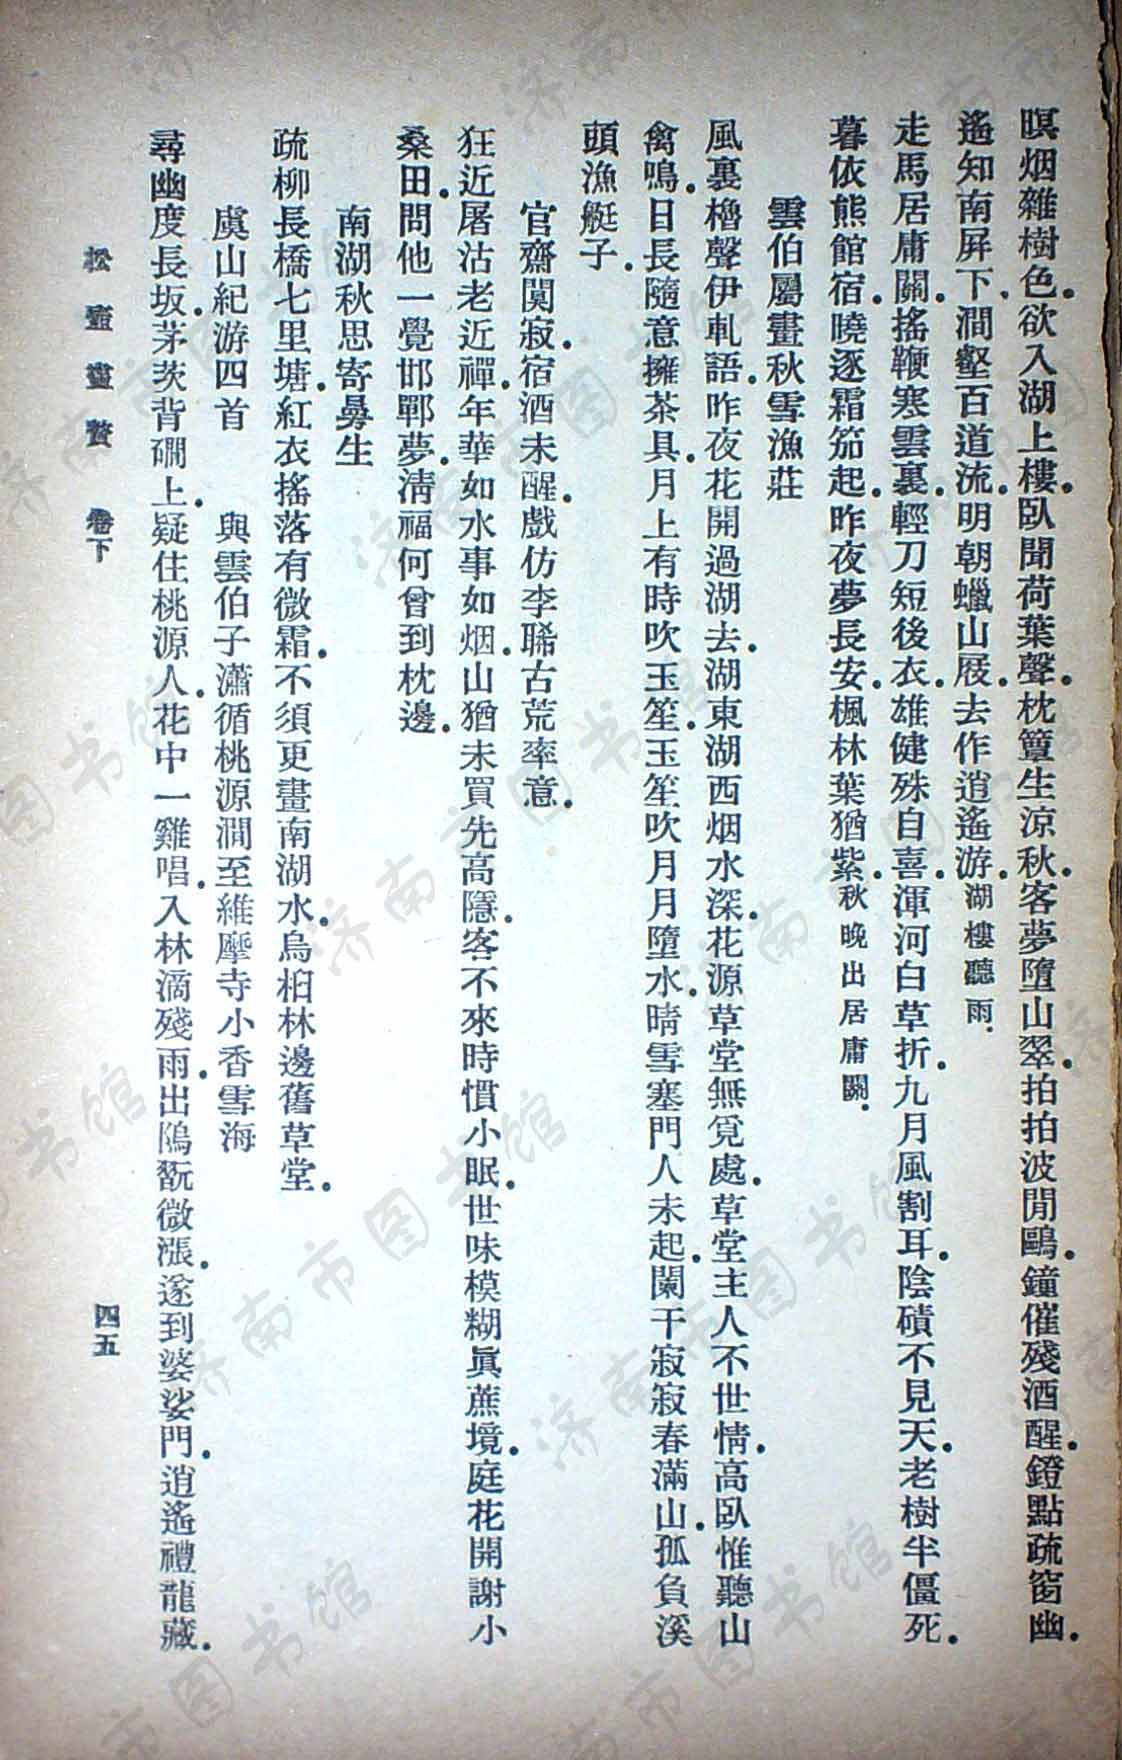 暝烟雜樹色.欲入湖上樓.臥聞荷葉聲.枕簟生涼秋.客夢墮山翠.拍拍波間鷗.鐘催殘酒醒.鐙點疏窗幽.
遙知南屏下.澗壑百道流.明朝蠟山屐.去作逍遙游.湖樓聽雨.
走馬居庸關.搖鞭寒雲裏.輕刀短後衣.雄健殊自喜.渾河白草折.九月風割耳.陰磧不見天.老樹半僵死.
暮依熊館宿.曉逐霜笳起.昨夜夢長安.楓林葉猶紫.秋晚出居庸關.
雲伯屬畫秋雪漁莊
風裏櫓聲伊軋語.昨夜花開過湖去.湖東湖西烟水深.花源草堂無覓處.草堂主人不世情.高臥惟聽山
禽鳴.日長隨意擁茶具.月上有時吹玉笙.玉笙吹月月墮水.晴雪塞門人未起.闌干寂寂春滿山.孤負溪
頭漁艇子.
官齋闃寂.宿酒未醒.戲仿李晞古荒率意.
狂近屠沽老近禪.年華如水事如烟.山猶未買先高隱.客不來時慣小眠.世味模糊眞蔗境.庭花開謝小
桑田.問他一覺邯鄲夢.淸福何曾到枕邊.
南湖秋思寄曼生
疏柳長橋七里塘.紅衣搖落有微霜.不須更畫南湖水.烏桕林邊舊草堂.
虞山紀游四首 與雲伯子瀟循桃源澗至維摩寺小香雪海
尋幽度長坂.茅茨背磵上.疑住桃源人.花中一雞唱.入林滴殘雨.出隖翫微漲.遂到婆娑門.逍遙禮龍藏.
松壺畫贅 卷下 四五